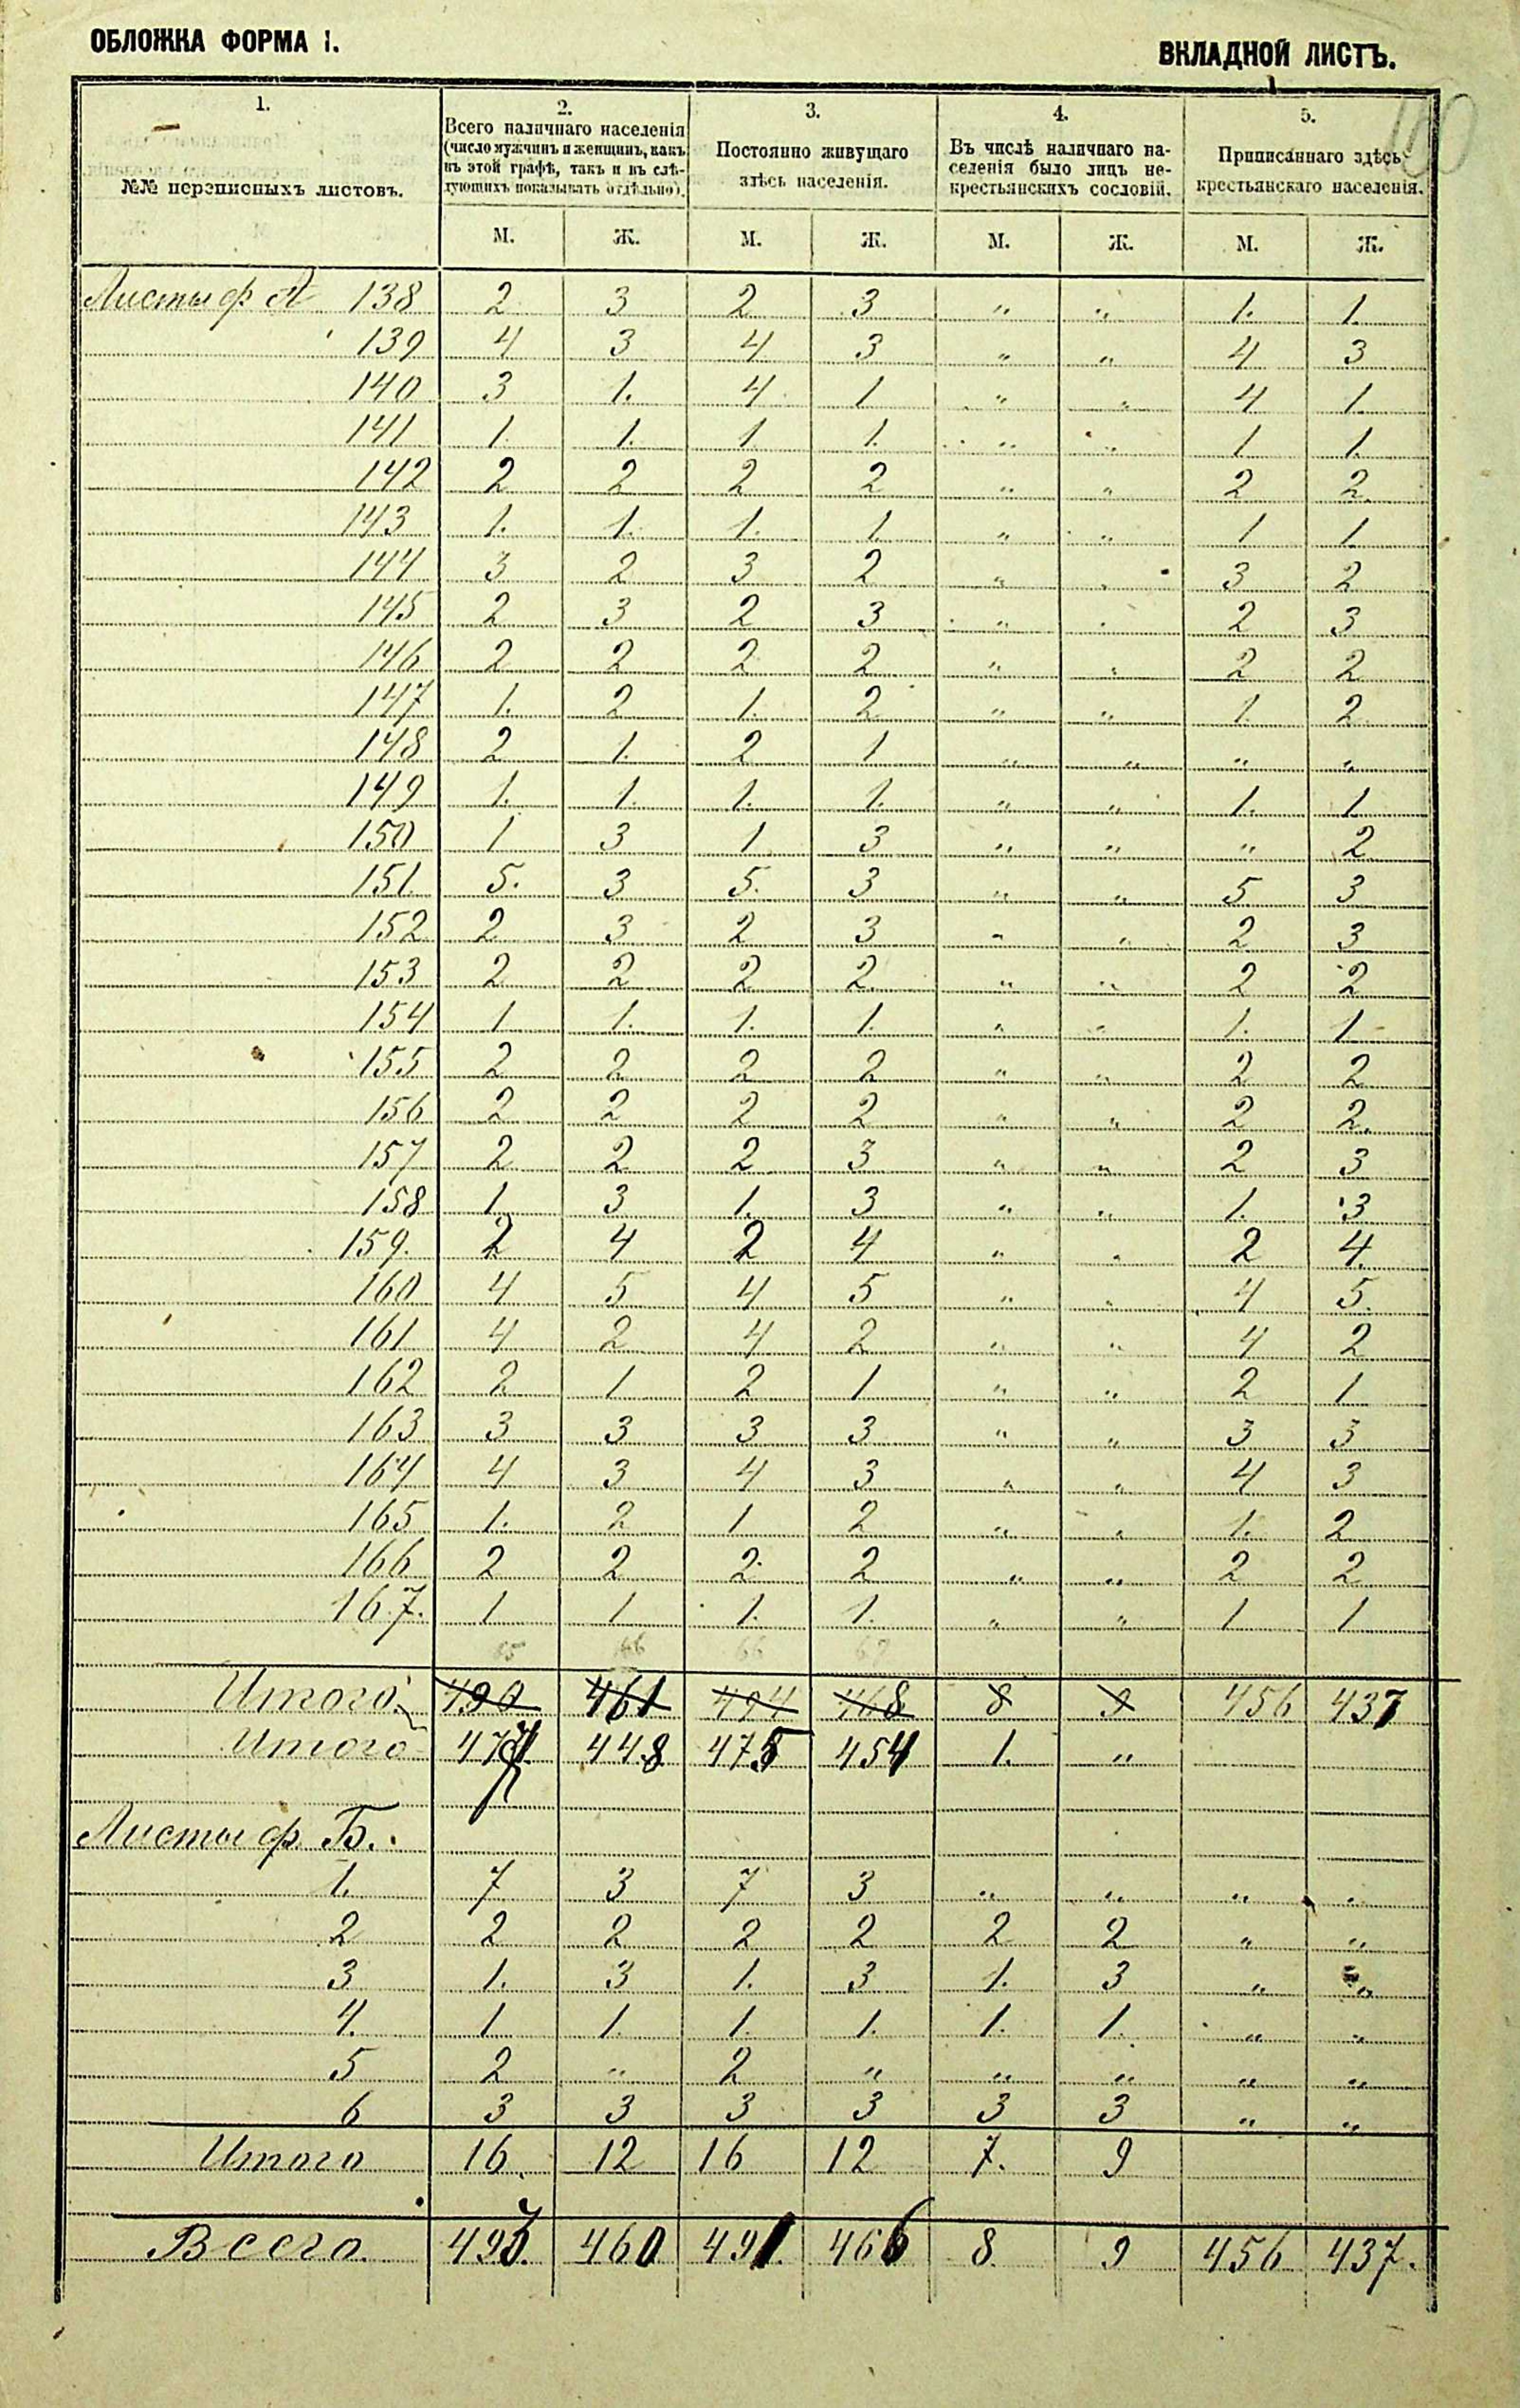 ОБЛОЖКА ФОРМА I.
ВКЛАДНОЙ ЛИСТЪ.
1. 2. 3. 4. 5.
№№ переписныхъ листовъ.
Всего наличнаго населенія
(число мужчинъ и женщинъ, какъ
въ этой графѣ, такъ и въ слѣ-
дующихъ показывать отдѣльно).
Постоянно живущаго
здѣсь населенія.
Въ числѣ наличнаго на-
селенія было лицъ не-
крестьянскихъ сословій.
Приписаннаго здѣсь
крестьянскаго населенія.
М. Ж. М. Ж. М. Ж. М. Ж.
Листы ф А 138 2 3 2 3 " " 1. 1.
139 4 3 4 3 " " 4 3
140 3 1. 4 1 " " 4 1.
141 1. 1. 1 1. " " 1 1.
142 2 2 2 2 " " 2 2.
143 1. 1. 1. 1. " " 1 1
144 3 2 3 2 " " 3 2
145 2 3 2 3 " " 2 3
146 2 2 2 2 " " 2 2
147 1. 2 1. 2 " " 1. 2
148 2 1. 2 1 " " " "
149 1. 1. 1. 1. " " 1. 1
150 1 3 1 3 " " " 2
151 5. 3 5. 3 " " 5 3
152 2 3 2 3 " " 2 3
153 2 2 2 2. " " 2 2
154 1 1. 1. 1. " " 1. 1
155 2 2 2 2 " " 2 2
156 2 2 2 2 " " 2 2.
157 2 2 2 3 " " 2 3
158 1. 3 1. 3 " " 1. 3
159. 2 4 2 4 " " 2 4.
160 4 5 4 5 " " 4 5.
161 4 2 4 2 " " 4 2
162 2 1 2 1 " " 2 1
163 3 3 3 3 " " 3 3
164 4 3 4 3 " " 4 3
165 1. 2 1 2 " " 1. 2
166 2 2 2 2 " " 2 2
167. 1 1 1. 1. " " 1 1
Итого 490 461 494 468 8 9 456 437
Итого 448 475 454 1. "
Листы ф. Б.
1. 7 3 7 3 " " " "
2 2 2 2 2 2 2 " "
3 1. 3 1. 3 1. 3 " "
4. 1 1. 1. 1. 1. 1. " "
5 2 " 2 " " " " "
6 3 3 3 3 3 3 " "
Итого 16. 12 16 12 7. 9
Всего. 460 491. 466 8. 9 456 437.